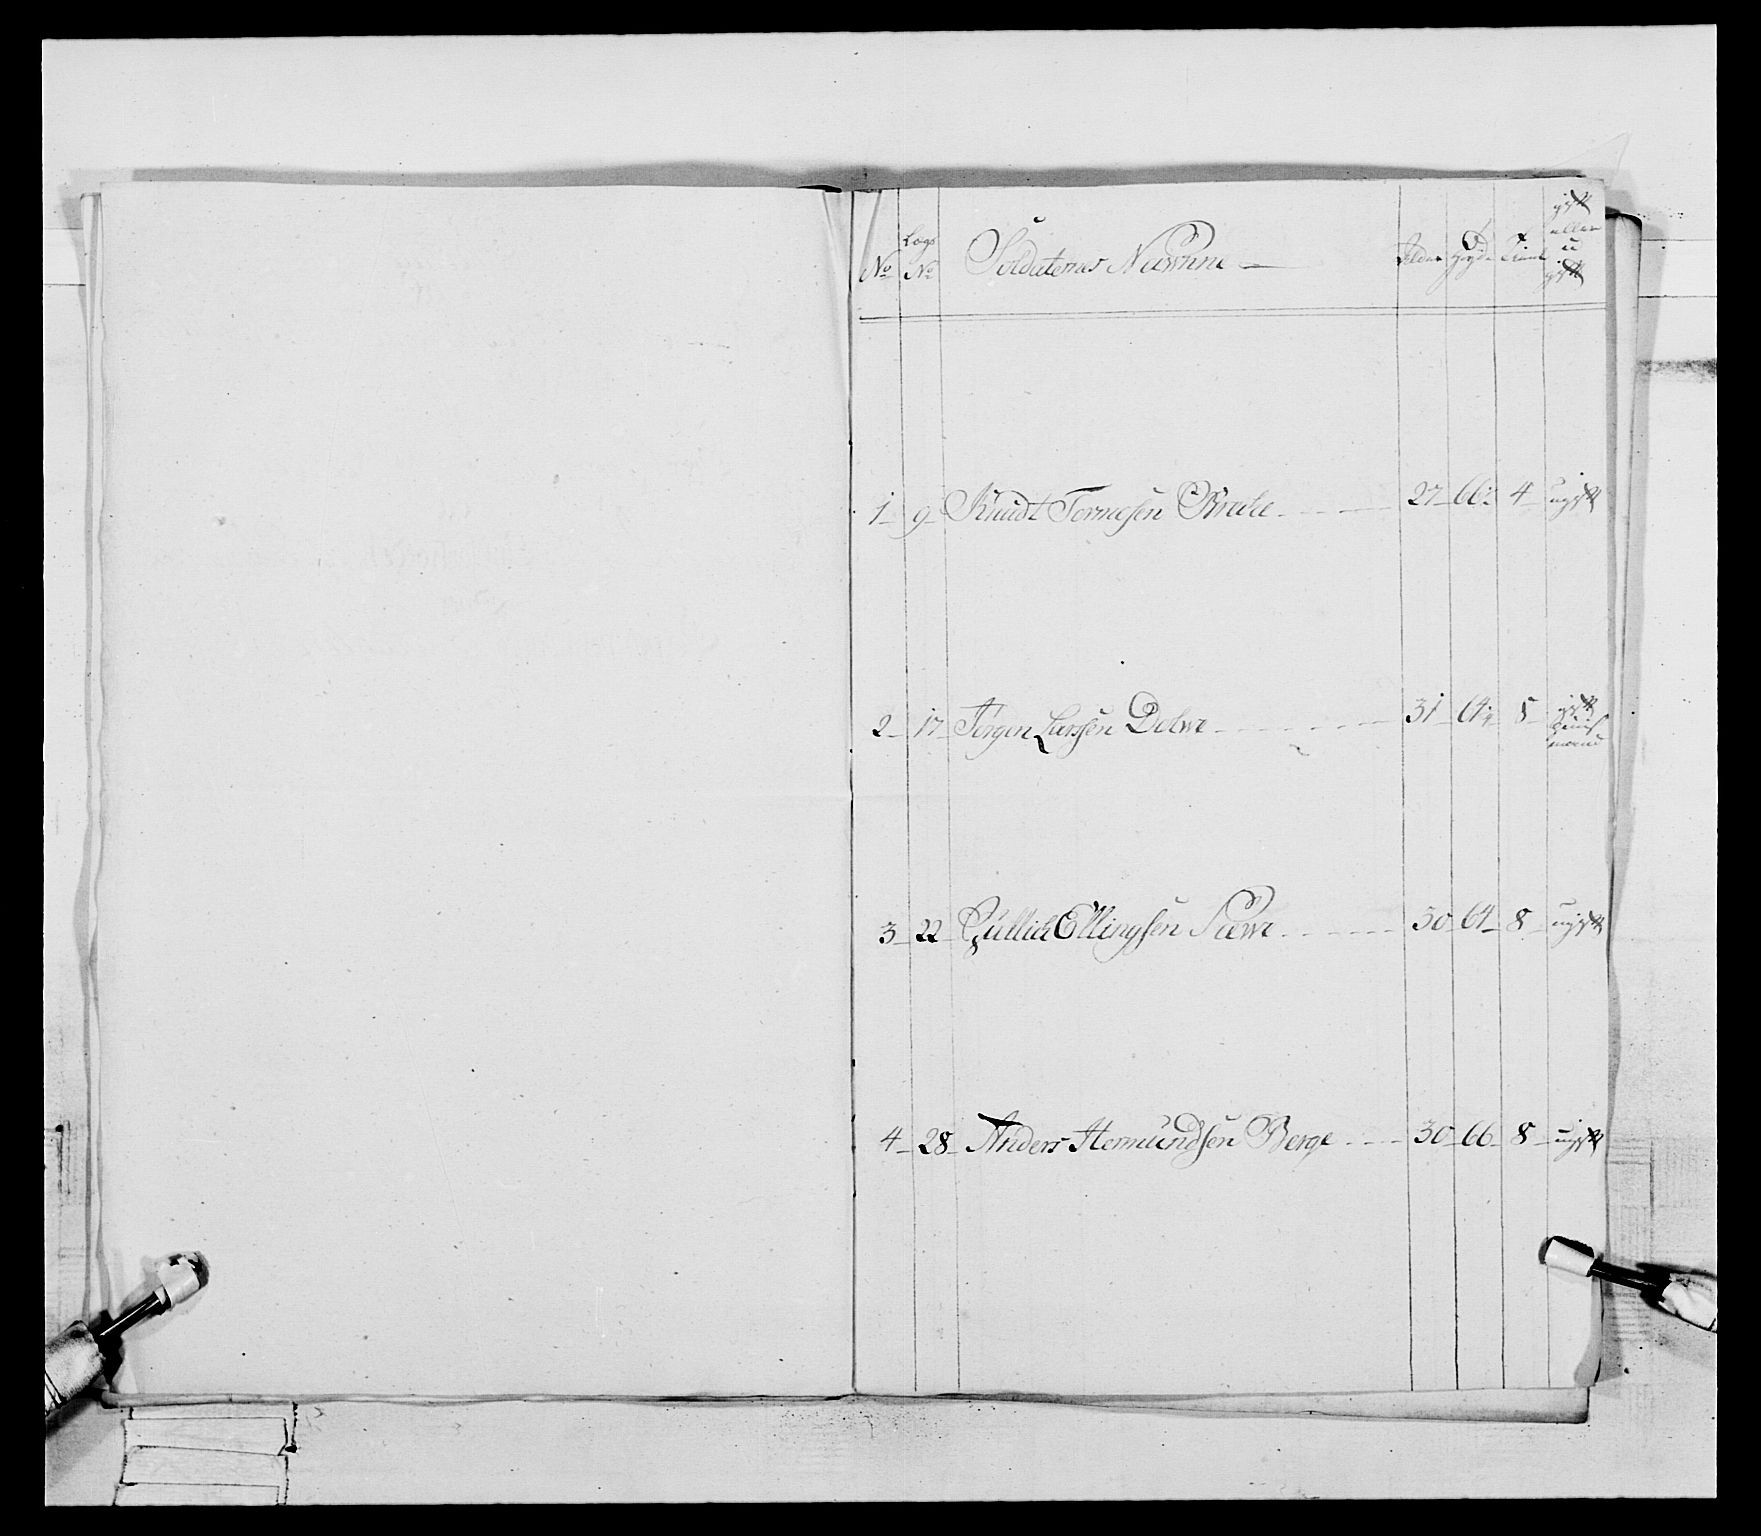 No Lægs No Soldaternes Nawne Alder Høyde Tient gift eller ugift
1 9 Knudt Tormosen Bratle 27 66½ 4 ugift
2 17 Jørgen Larssen Dolwe 31 64¼ 8 gift Huus mand
3 22 Gullich Ellingsen Sæwe 30 64 8 ugift
4 28 Anders Hermundsen Berge 30 66 8 ugift